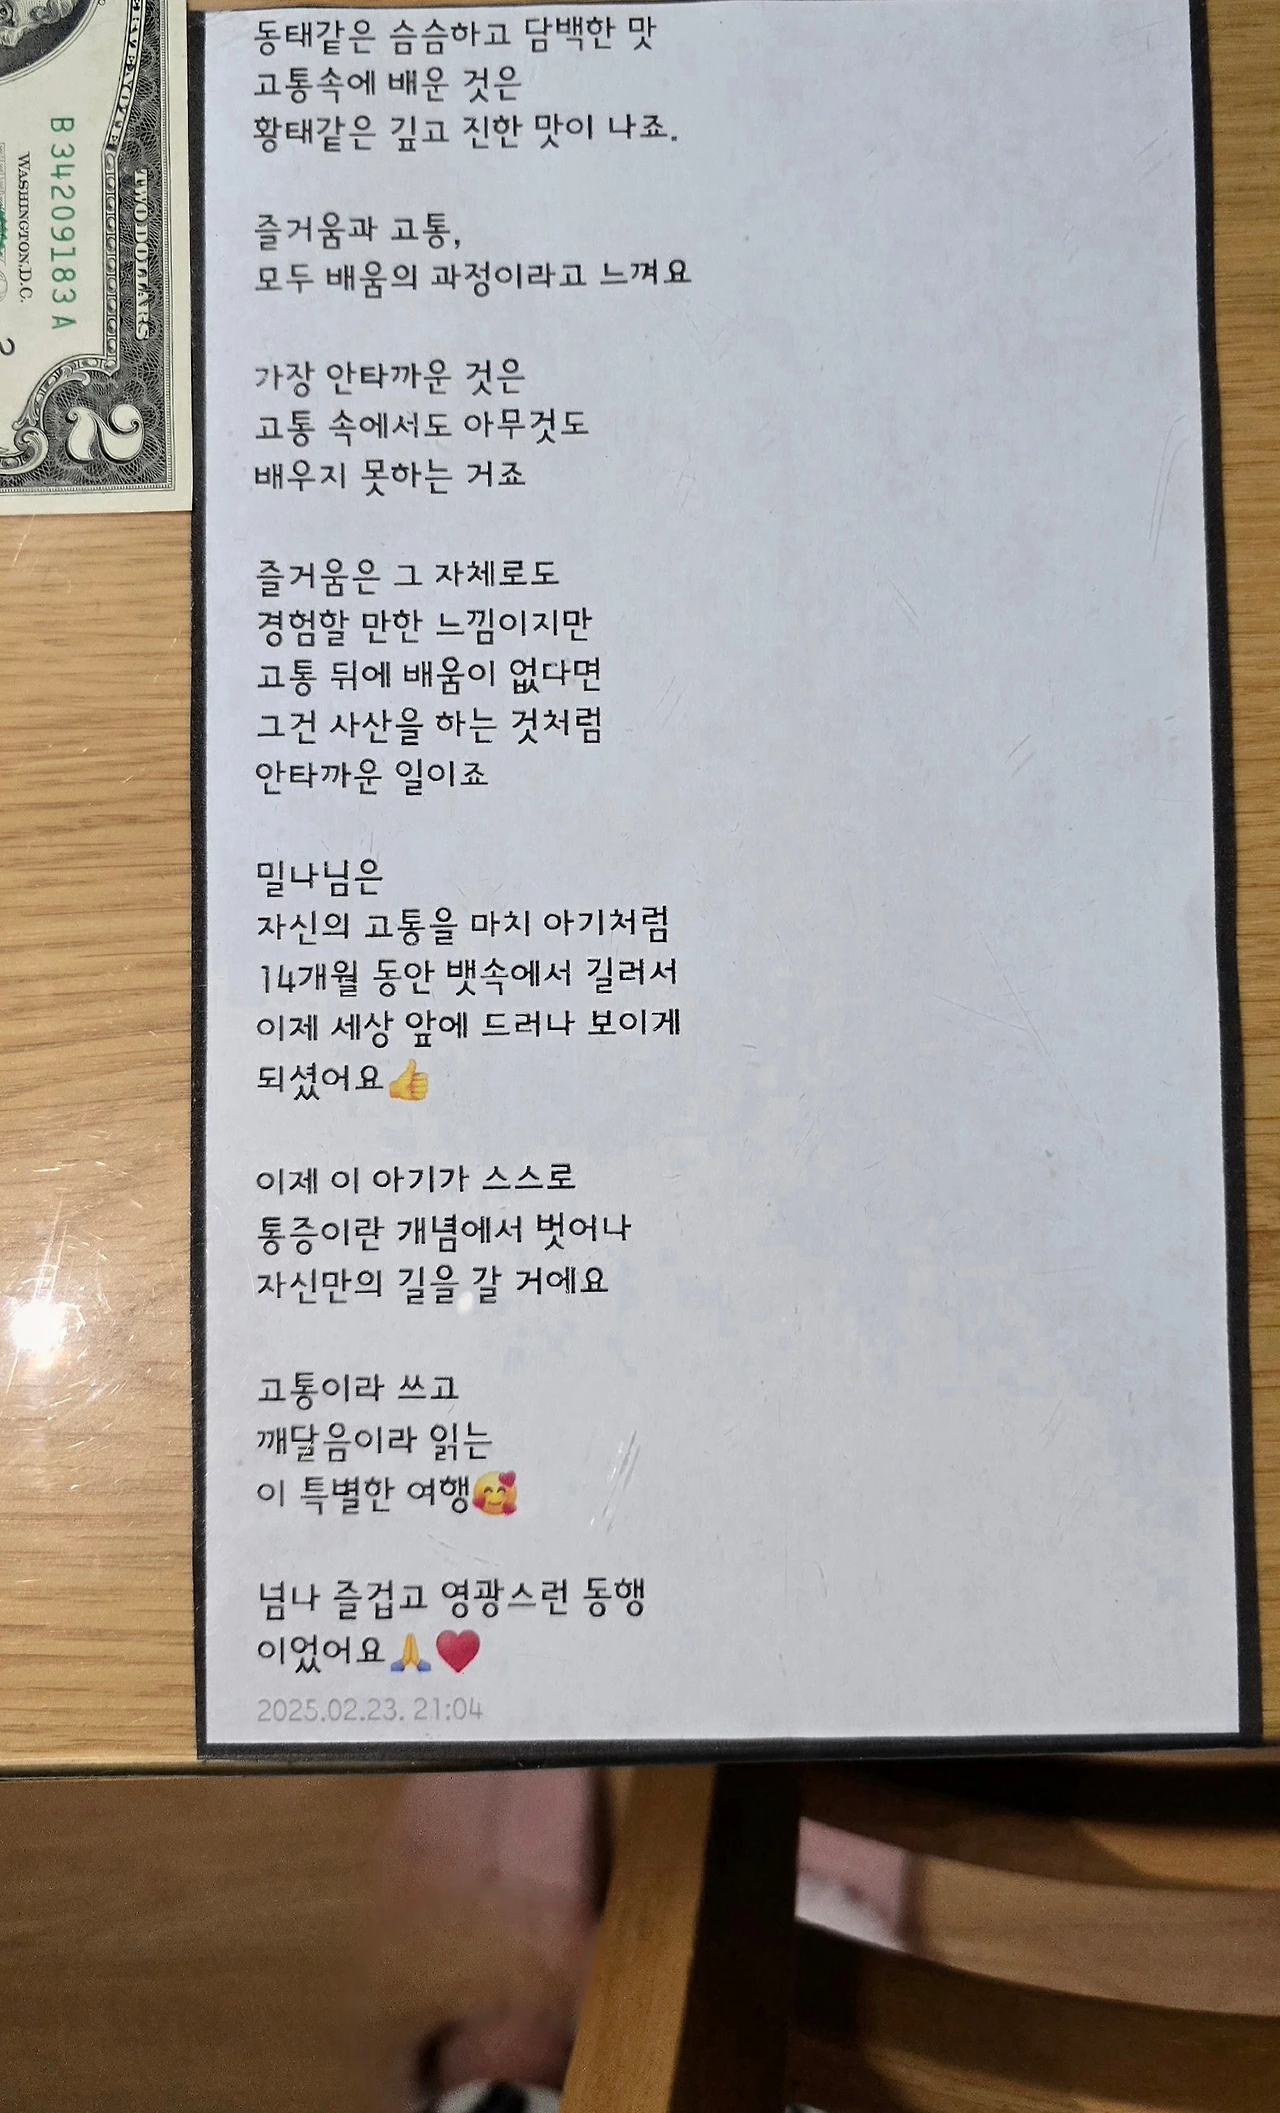 동태같은 슴슴하고 담백한 맛
고통속에 배운 것은
황태같은 깊고 진한 맛이 나죠.
즐거움과 고통,
모두 배움의 과정이라고 느껴요
가장 안타까운 것은
고통 속에서도 아무것도
배우지 못하는 거죠
즐거움은 그 자체로도
경험할 만한 느낌이지만
고통 뒤에 배움이 없다면
그건 사산을 하는 것처럼
안타까운 일이죠
밀나님은
자신의 고통을 마치 아기처럼
14개월 동안 뱃속에서 길러서
이제 세상 앞에 드러나 보이게
되셨어요👍
이제 이 아기가 스스로
통증이란 개념에서 벗어나
자신만의 길을 갈 거에요
고통이라 쓰고
깨달음이라 읽는
이 특별한 여행🥰
넘나 즐겁고 영광스런 동행
이었어요🙏❤️
2025.02.23. 21:04
B34209183A
WASHINGTON, D.C.
TWO DOLLARS
2
2